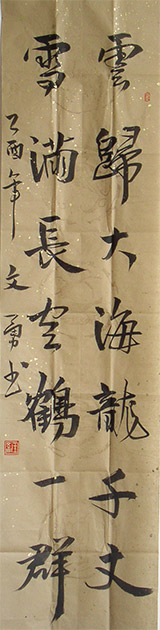 雲歸大海龍千丈
雪滿長空鶴一群
乙酉年文勇书